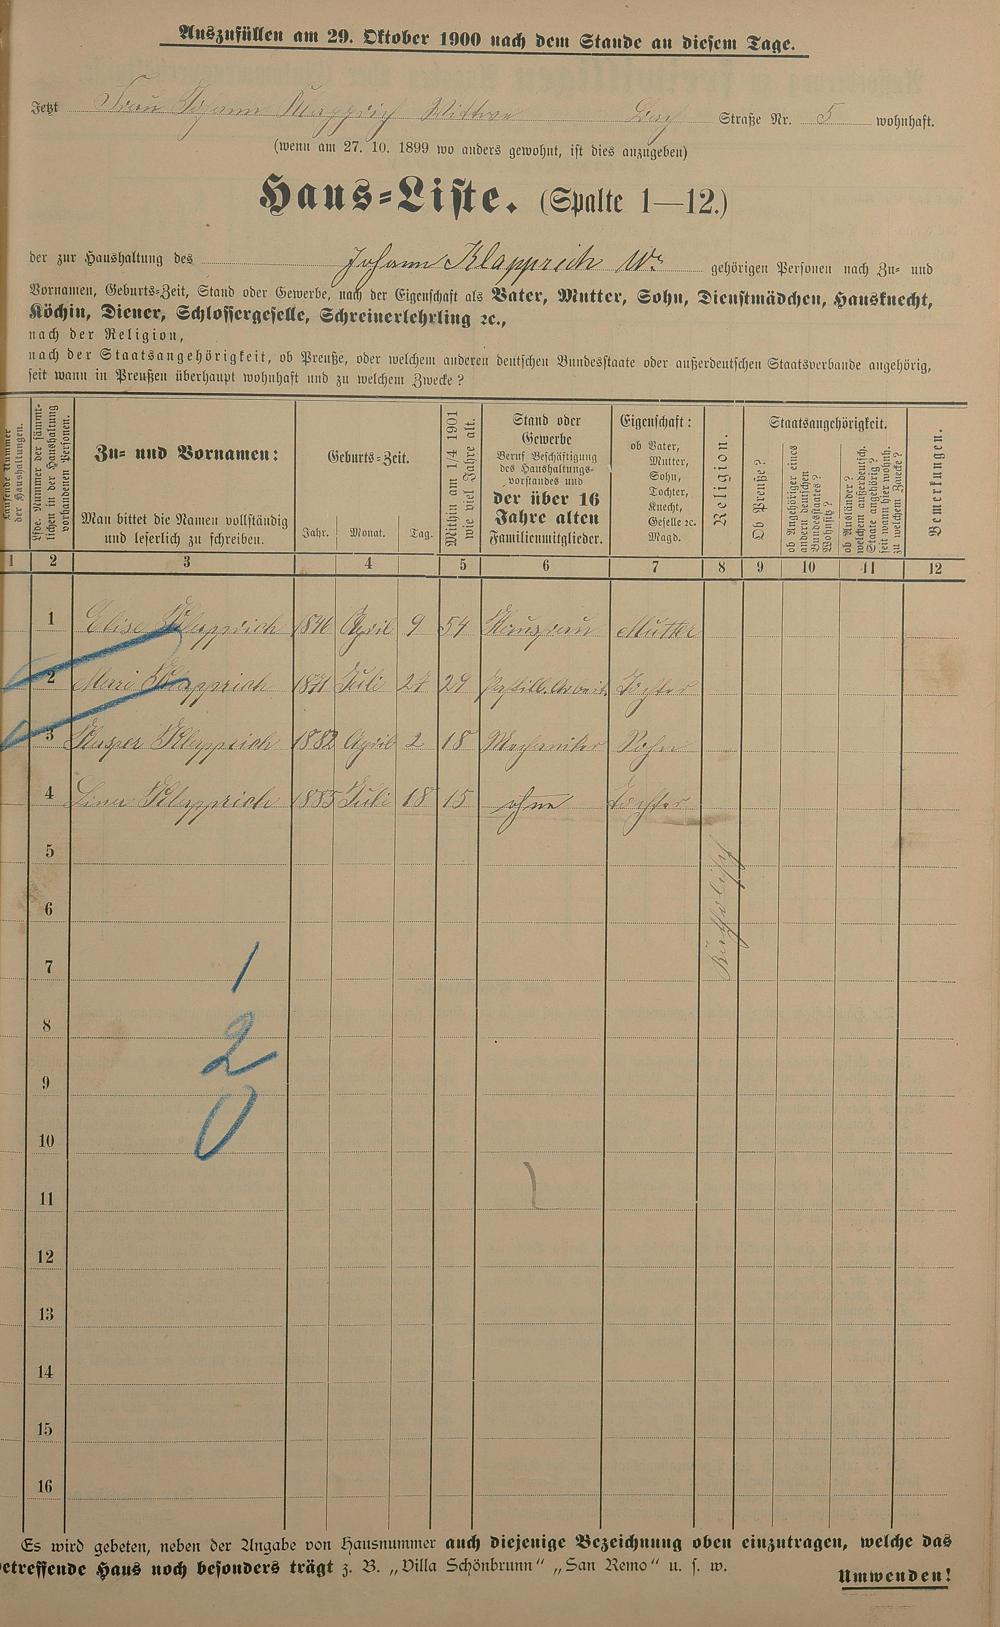 Auszufüllen am 29. Oktober 1900 nach dem Stande an diesem Tage.
Jetzt Frau Johann Klapprich Wittwe Bach Straße Nr. 5 wohnhaft.
(wenn am 27. 10. 1899 wo anders gewohnt, ist dies anzugeben)
Haus-Liste. (Spalte 1—12.)
der zur Haushaltung des Johann Klapprich Wwe gehörigen Personen nach Zu- und
Vornamen, Geburts-Zeit, Stand oder Gewerbe, nach der Eigenschaft als Vater, Mutter, Sohn, Dienstmädchen, Hausknecht,
Köchin, Diener, Schlossergeselle, Schreinerlehrling ꝛc.,
nach der Religion,
nach der Staatsangehörigkeit, ob Preuße, oder welchem anderen deutschen Bundesstaate oder außerdeutschen Staatsverbande angehörig,
seit wann in Preußen überhaupt wohnhaft und zu welchem Zwecke?
Laufende Nummer
der Haushaltungen.
Lfde. Nummer der sämmt-
lichen in der Haushaltung
vorhandenen Personen.
Zu- und Vornamen:
Man bittet die Namen vollständig
und leserlich zu schreiben.
Geburts-Zeit.
Jahr. Monat. Tag.
Mithin am 1/4 1901
wie viel Jahre alt.
Stand oder
Gewerbe
Beruf Beschäftigung
des Haushaltungs-
vorstandes und
der über 16
Jahre alten
Familienmitglieder.
Eigenschaft:
ob Vater,
Mutter,
Sohn,
Tochter,
Knecht,
Geselle ꝛc.
Magd.
Religion.
Staatsangehörigkeit.
Ob Preuße?
ob Angehöriger eines
andern deutschen
Bundesstaates?
Wohnsitz?
ob Ausländer?
welchem außerdeutsch.
Staate angehörig?
seit wann hier wohnh.
zu welchem Zwecke?
Bemerkungen.
1 2 3 4 5 6 7 8 9 10 11 12
1 Elise Klapprich 1846 April 9 54 Hausfrau Mutter
2 Mari Klapprich 1871 Juli 27 29 Tochter
3 Kasper Klapprich 1882 April 2 18 Mechaniker Sohn
4 Lina Klapprich 1885 Juli 18 15 ohne Tochter
Katholisch
5
6
7
1
8
2
9
0
10
11
12
13
14
15
16
Es wird gebeten, neben der Angabe von Hausnummer auch diejenige Bezeichnung oben einzutragen, welche das
betreffende Haus noch besonders trägt z. B. „Villa Schönbrunn“ „San Remo“ u. s. w.
Umwenden!